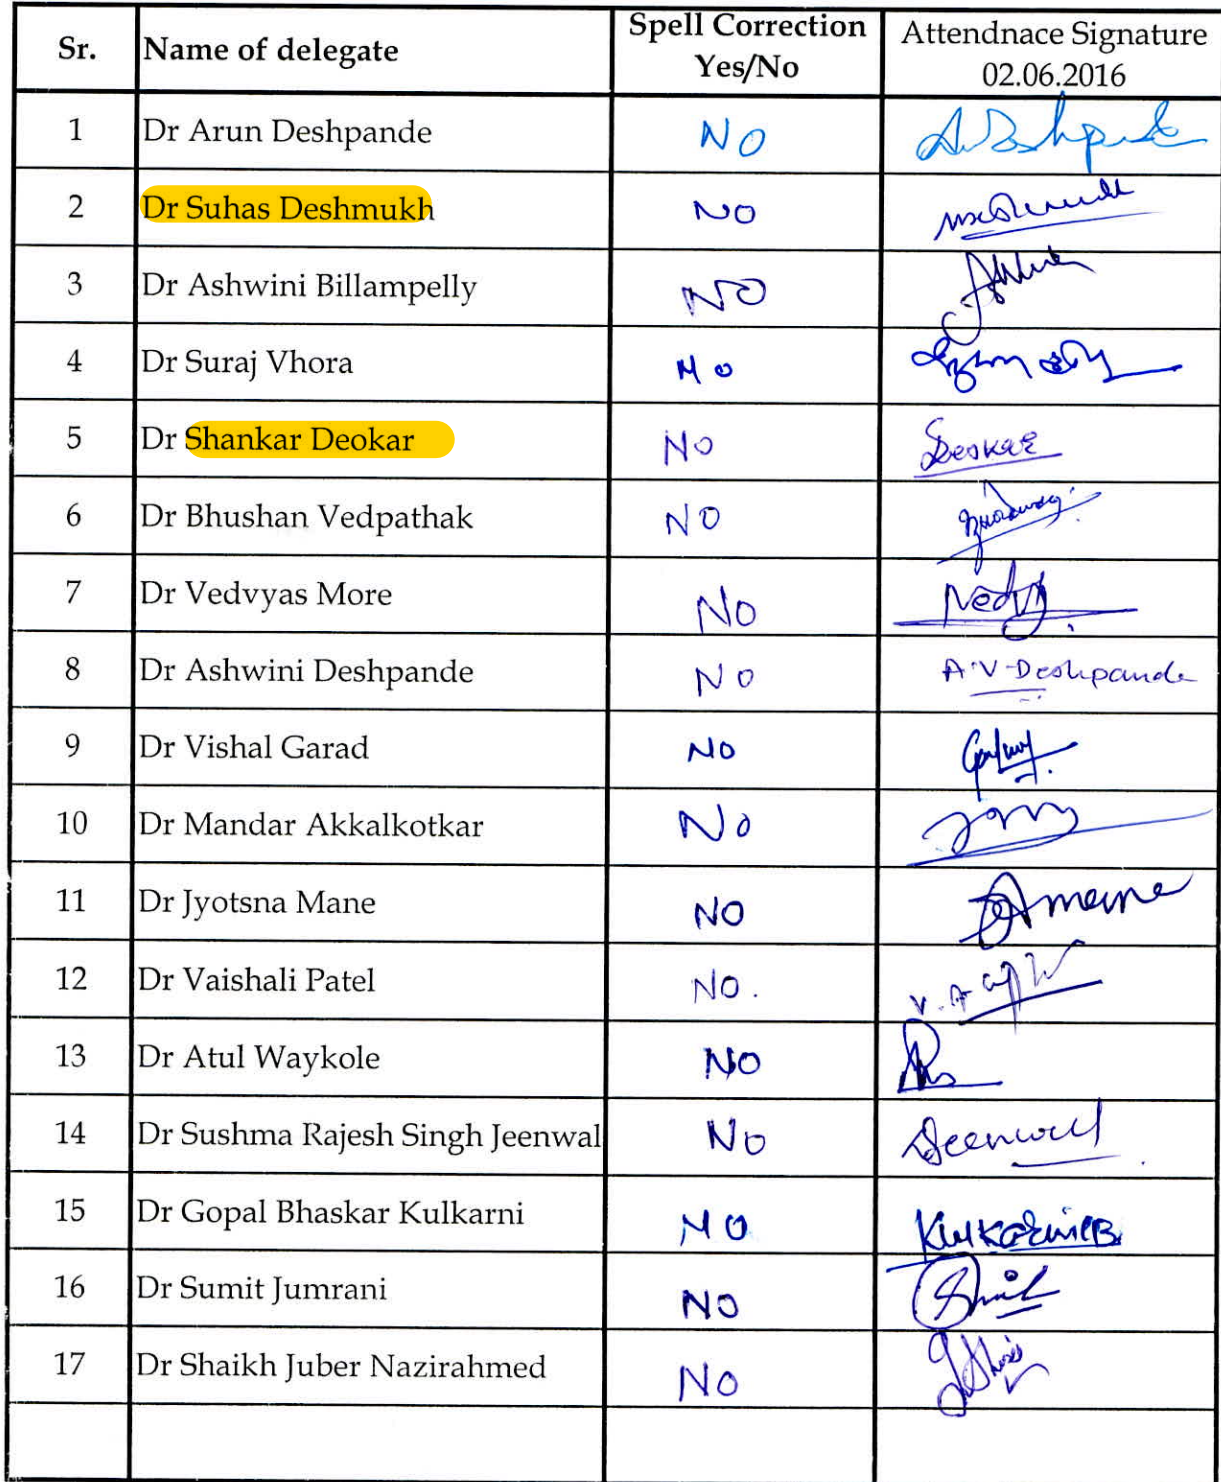 Sr. Name of delegate Spell Correction Yes/No Attendnace Signature 02.06.2016
1 Dr Arun Deshpande NO
2 Dr Suhas Deshmukh NO
3 Dr Ashwini Billampelly NO
4 Dr Suraj Vhora No
5 Dr Shankar Deokar No Deokar
6 Dr Bhushan Vedpathak NO
7 Dr Vedvyas More No
8 Dr Ashwini Deshpande No A.V-Deshpande
9 Dr Vishal Garad NO
10 Dr Mandar Akkalkotkar No
11 Dr Jyotsna Mane NO
12 Dr Vaishali Patel NO.
13 Dr Atul Waykole NO
14 Dr Sushma Rajesh Singh Jeenwal No Jeenwal
15 Dr Gopal Bhaskar Kulkarni NO
16 Dr Sumit Jumrani NO
17 Dr Shaikh Juber Nazirahmed No